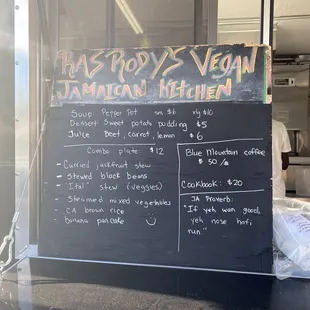 RAS RODY'S VEGAN
JAMAICAN KITCHEN
Soup Pepper Pot sm $6 xlg $10
Dessert Sweet potato pudding $5
Juice Beet, carrot, lemon $6
Combo plate $12
- Curried jackfruit stew
- Stewed black beans
- Ital stew (veggies)
- Steamed mixed vegetables
- CA brown rice
- Banana pancake
Blue Mountain coffee
$50/lb
Cookbook: $20
JA Proverb:
"If yeh wan good,
yeh nose hafi
run"